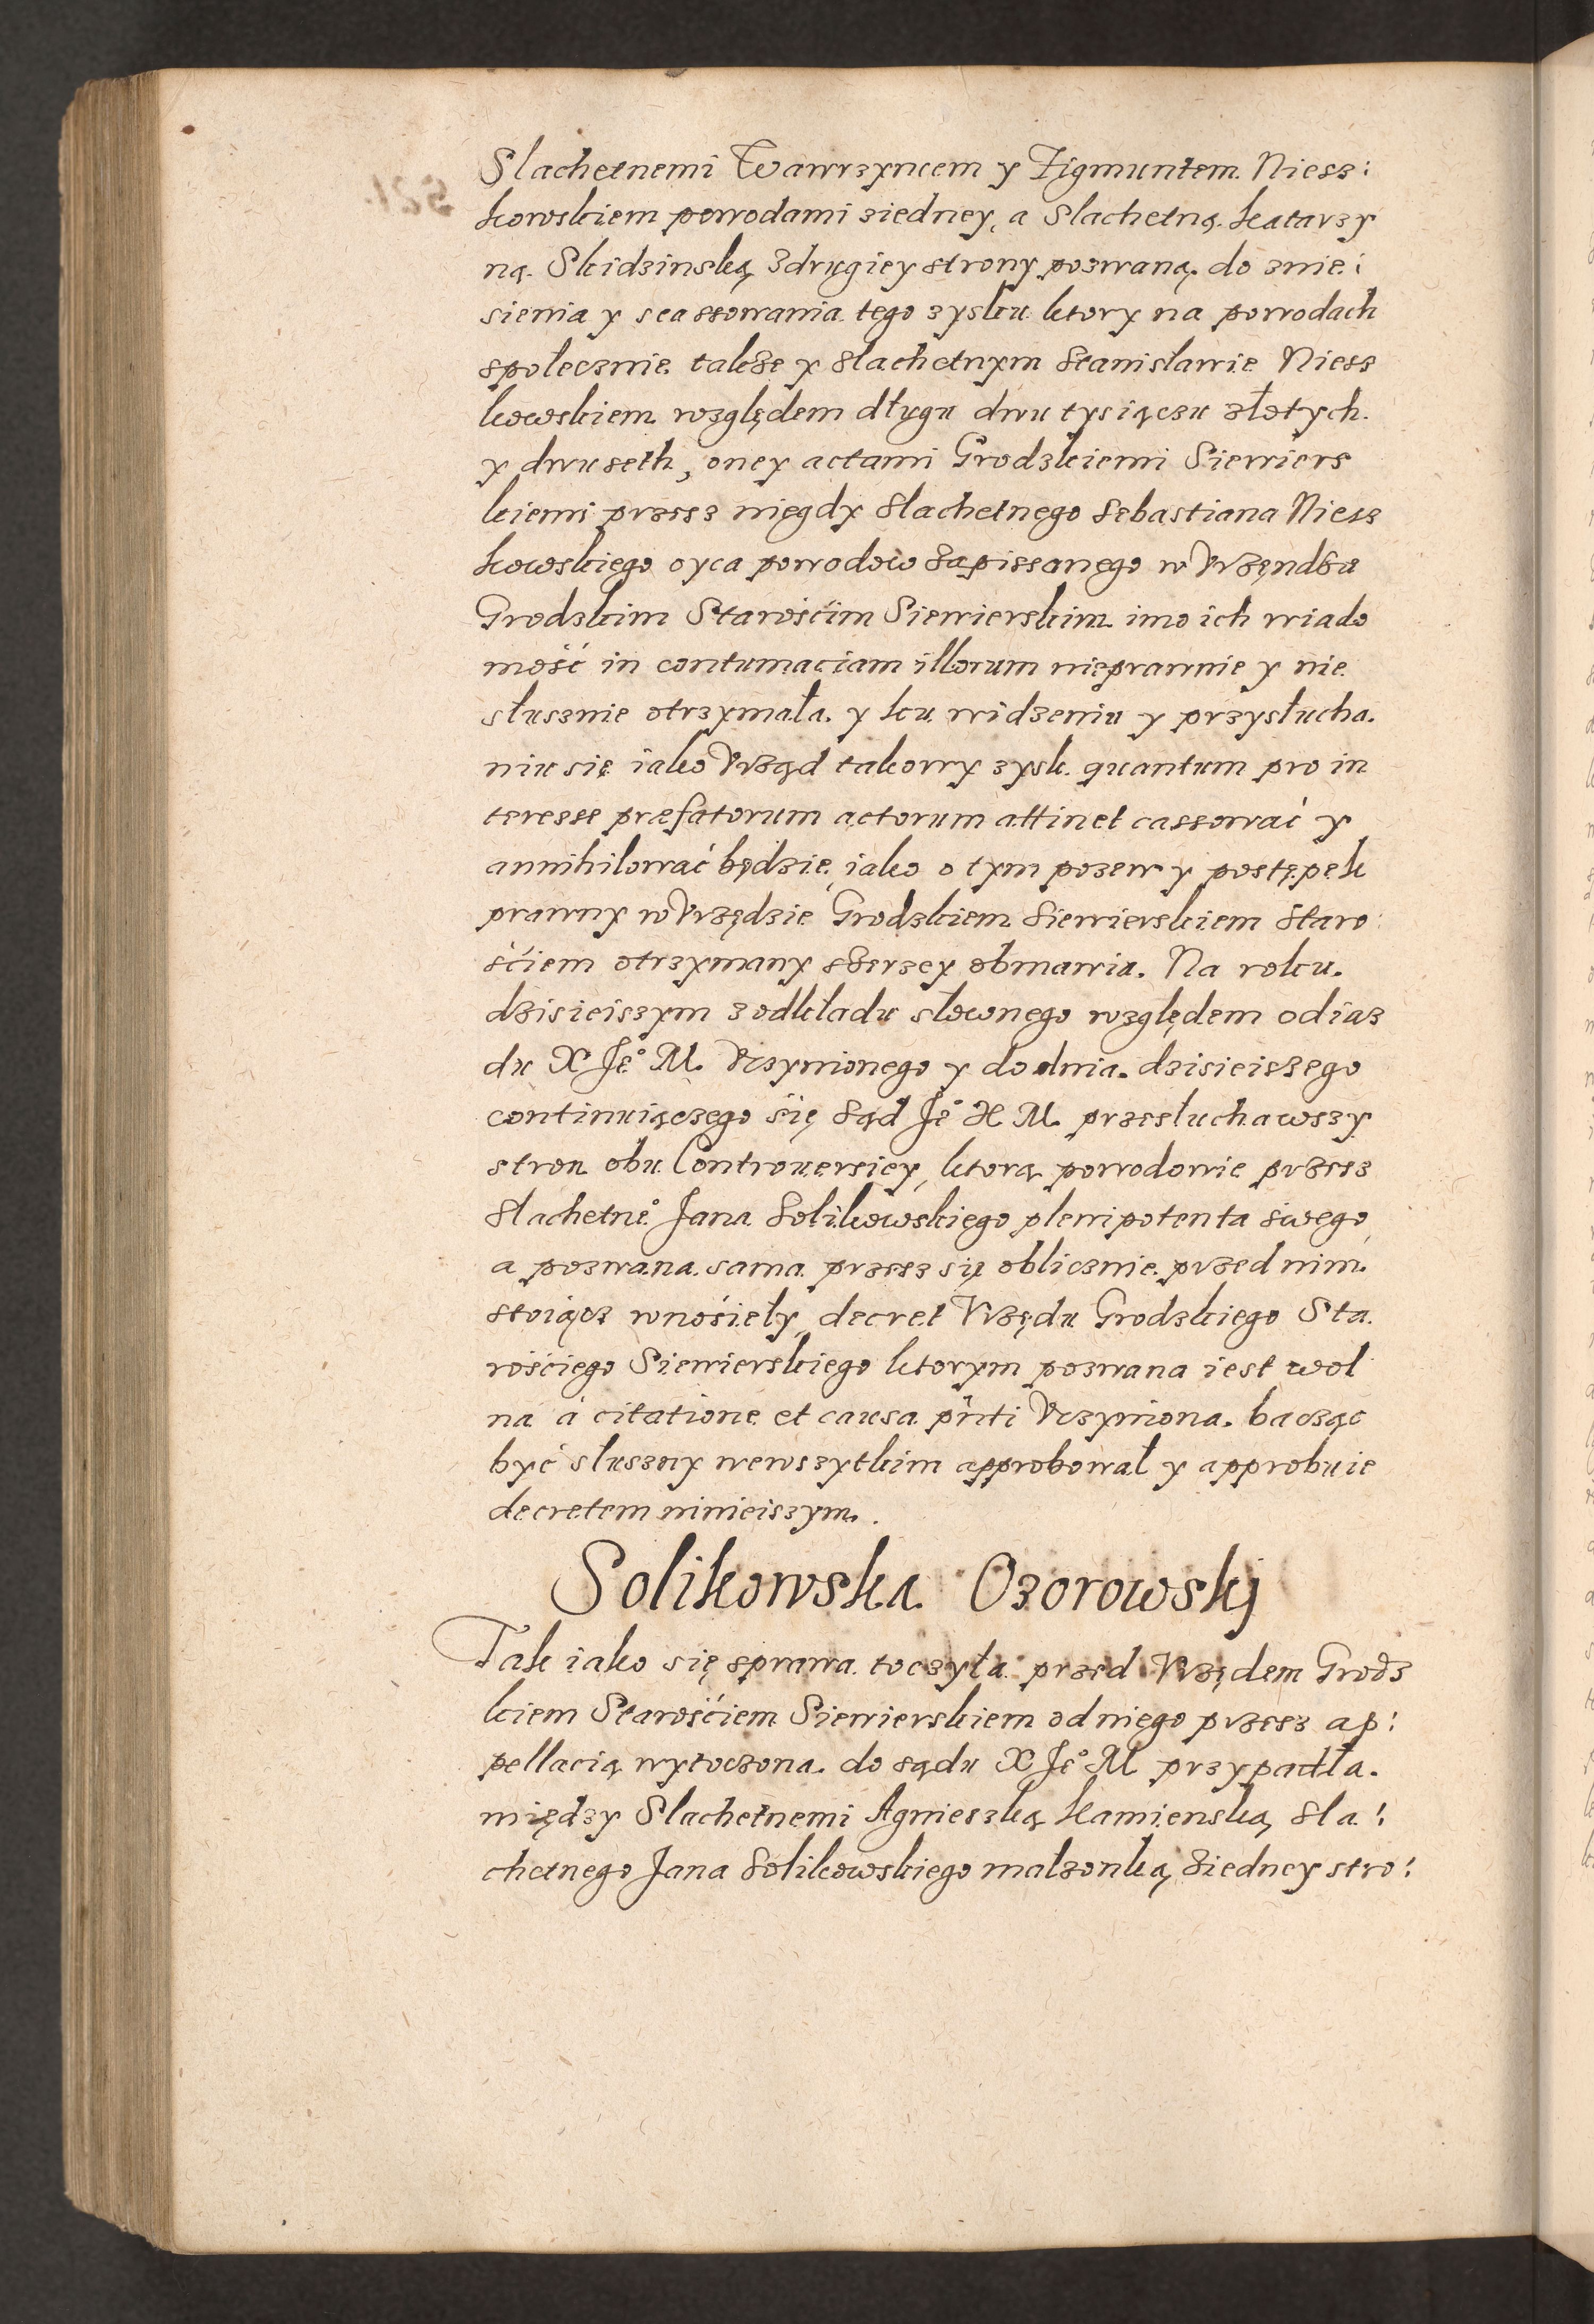 Slachetnemi Wawrzyncem y Zigmuntem Niesz:
kowskiem powodami ziedney, a Slachetną Katarzy
ną Skidzinską zdrugiey strony pozwaną do znie:
sienia y scassowania tego zysku ktory na powodach
spolecznie takze y slachetnym Stanisławie Niesz
kowskiem względem długu dwu tysiączu złotych
y dwuseth, oney actami Grodzkiemi Siewiers
kiemi przesz niegdy slachetnego Sebastiana Niesz
kowskiego oyca powodow zapissanego w Vrzęndzu
Grodzkim Starośćim Siewierskim imo ich wiado
mość in contumaciam illorum nieprawnie y nie
słusznie otrzymała y ku widzeniu y przysłucha
niu się iako Vrząd takowy zysk quantum pro in
teresse præfatorum actorum attinet cassować y
annihilować będzie, iako o tym pozew y postępek
prawny w Vrzędzie Grodzkiem Siewierskiem Staro:
śćiem otrzymany szerzey obmawia. Na roku
dzisieiszym z odkładu słownego względem odiaz
du X Je° M. Vczynionego y do dnia dzisieiszego
continuiączego się Sąd Je° X M. przesłuchawszy
stron obu Controuersiey, ktorą powodowie przesz
slachetne° Jana Solikowskiego plenipotenta swego,
a pozwana sama przesz się oblicznie przed nim
stoiącz wnośiely, decret Vrzędu Grodzkiego Sta
rośćiego Siewierskiego ktorym pozwana iest wol
na á citatione et causa pñti Vczyniona bacząc
być słuszny wewszytkim approbował y approbuie
decretem ninieiszym.
Solikowska Ozorowskj
Tak iako się sprawa toczyła przed Vrzędem Grodz
kiem Starośćiem Siewierskiem od niego przesz ap:
pellacią wytoczona do sądu X Je° M przypadła
między Slachetnemi Agnieszką Kamienską, sla:
chetnego Jana Solikowskiego malzonką ziedney stro: